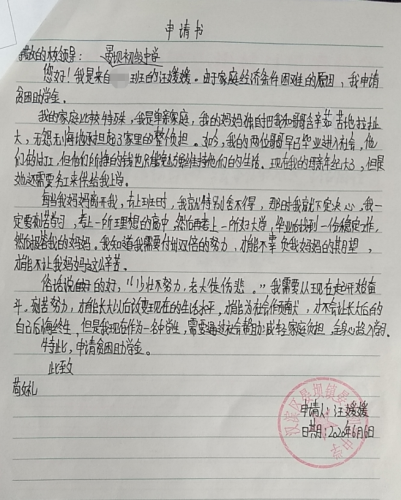 申请书
尊敬的校领导：晏坝初级中学
您好！我是来自 班的汪媛媛。由于家庭经济条件困难的原因，我申请
贫困助学金。
我的家庭比较特殊，我是单亲家庭，我的妈妈
大，无怨无悔地承担起了家里的整个负担。如今，我的两位 早已毕业进入社会，他
们外出打工，但他们所挣的钱也只能勉强维持他们自己的生活。现在我的妈妈年纪大了，但是
她还需要打工来供给我上学。
每当我妈妈 我，去上班时，我就特别舍不得，那时我就下定决心，我一
定要刻苦学习，考上一所理想的高中，然后再考上一所好大学，毕业后找到一份稳定工作，
然后报答我的妈妈。我知道我需要付出双倍的努力，才能不辜负我妈妈的期望，
才能不让我妈妈这么辛苦。
俗话说由于的好，“少壮不努力，老大徒伤悲。”我需要从现在起开始奋
斗，刻苦努力，才能长大以后改变现在的生活水平，才能为社会作贡献，才不会让长大后的
自己后悔终生，但是我现在作为一名学生，需要通过社会帮助，减轻家庭负担，
特此，申请贫困助学金。
此致
敬礼
申请人：汪媛媛
日期：2020年6月6日